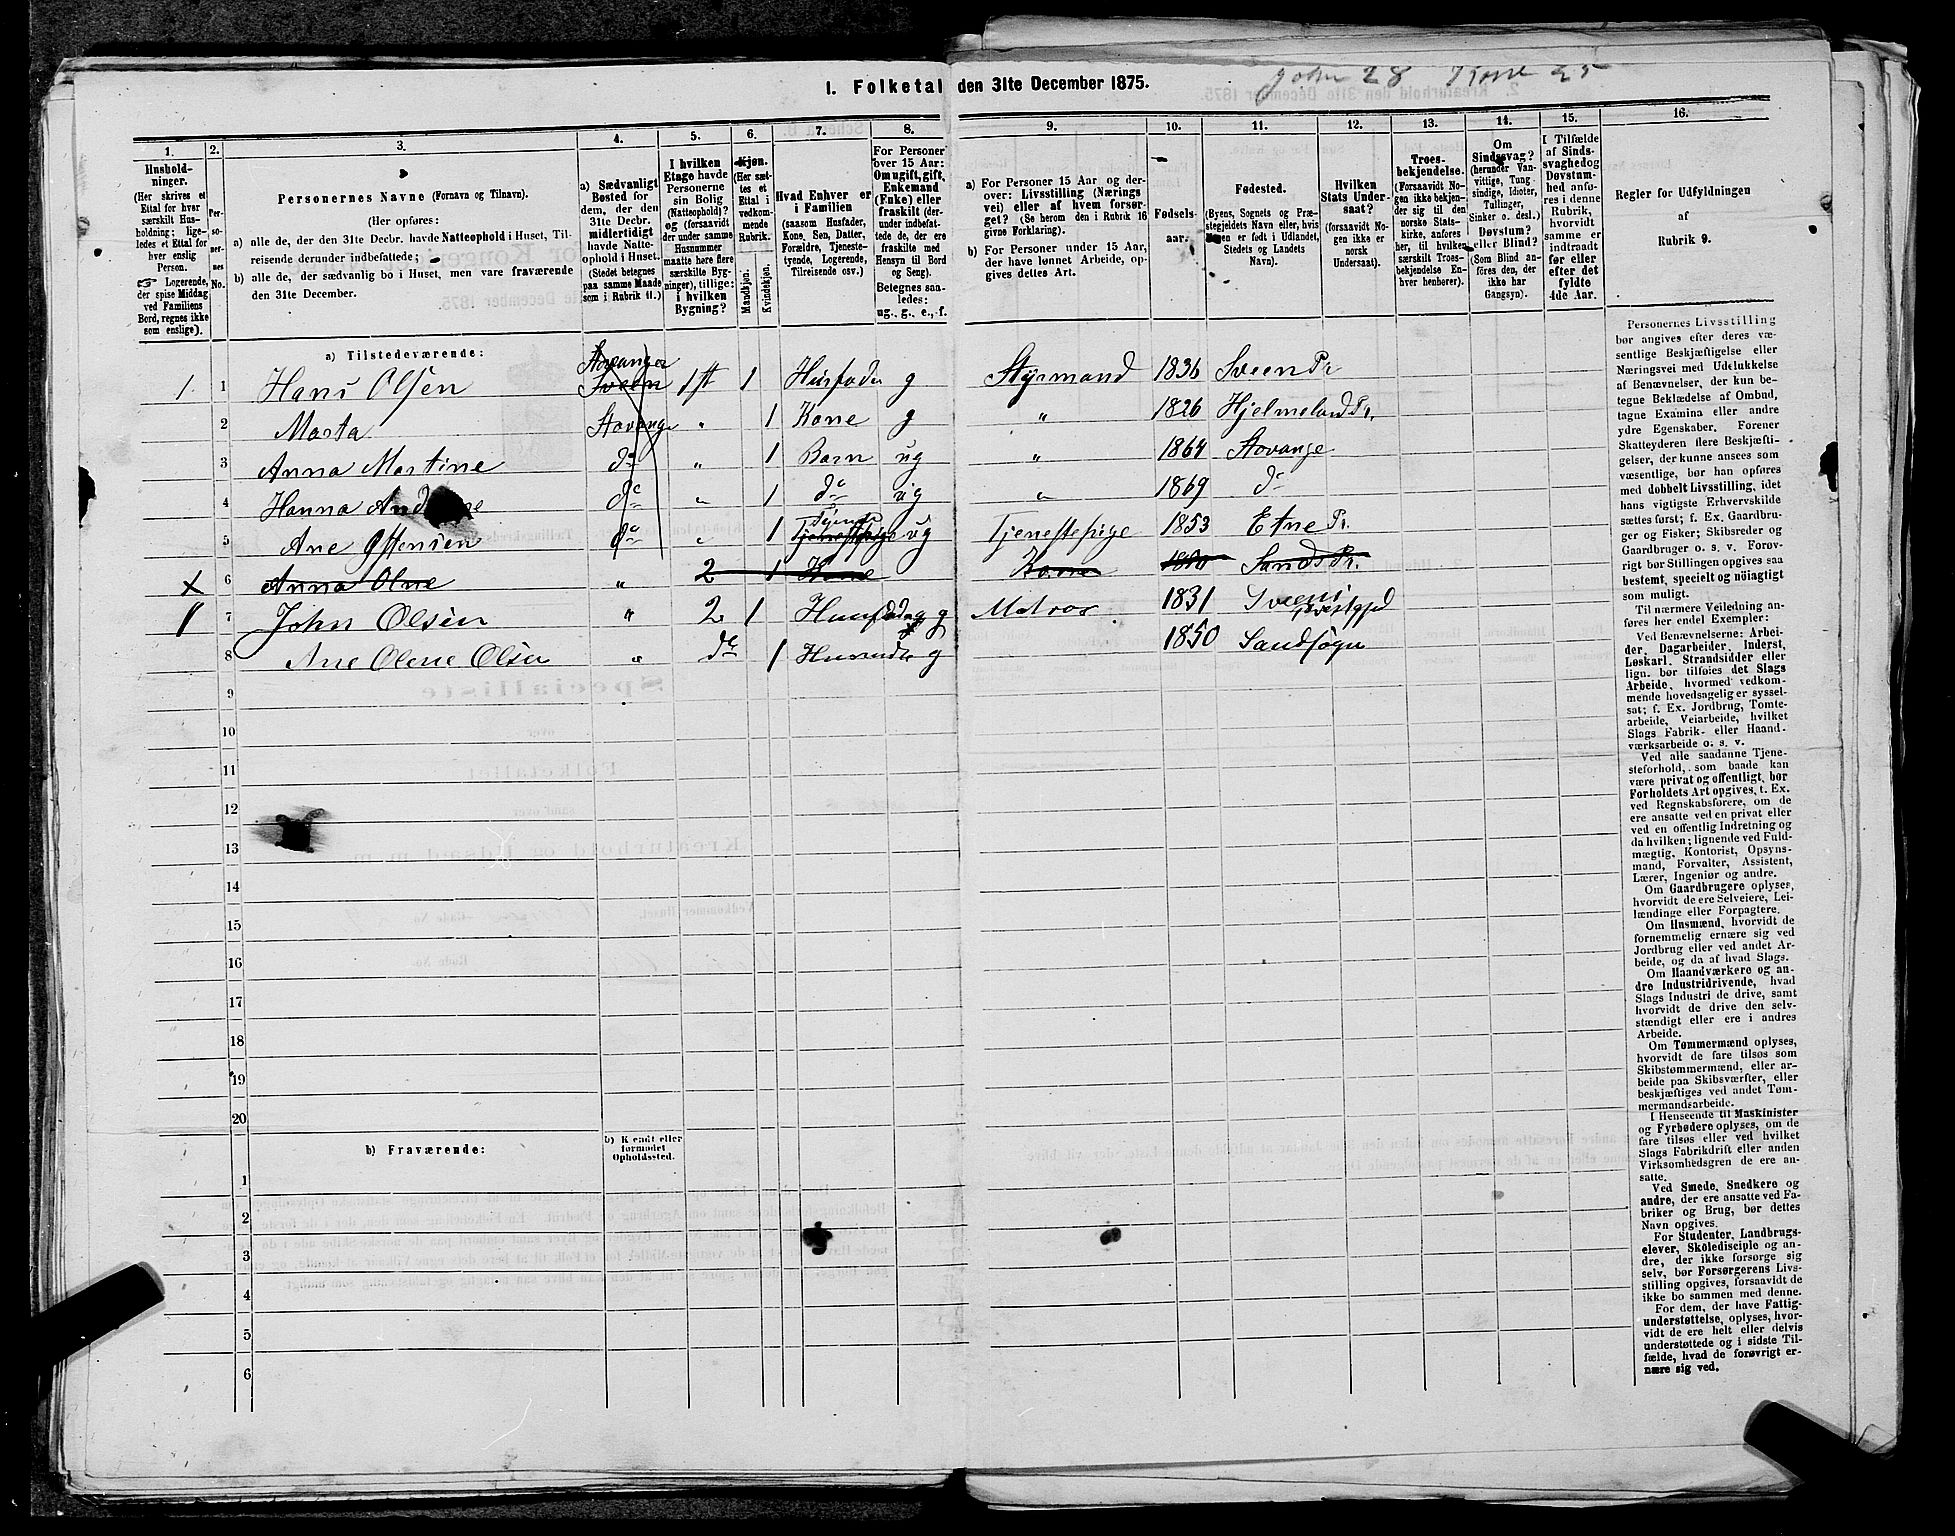 John 28 Kone 25
1. Folketal den 31te December 1875.
1. 2. 3. 4. 5. 6. 7. 8. 9. 10. 11. 12. 13. 14. 15. 16.
Hushold-
ninger.
(Her skrives et
Ettal for hver
særskilt Hus-
holdning; lige-
ledes et Ettal for
hver enslig
Person.
☞ Logerende,
der spise Middag
ved Familiens
Bord, regnes ikke
som enslige).
Per-
so-
ner-
nes
No.
Personernes Navne (Fornavn og Tilnavn).
(Her opføres:
a) alle de, der den 31te Decbr. havde Natteophold i Huset, Til-
reisende derunder indbefattede;
b) alle de, der sædvanlig bo i Huset, men vare fraværende
den 31te December.
a) Sædvanligt
Bosted for
dem, der den
31te Decbr.
midlertidigt
havde Natte-
ophold i Huset.
(Stedet betegnes
paa samme Maade
som i Rubrik 11.)
I hvilken
Etage havde
Personerne
sin Bolig
(Natteophold)?
og (forsaavidt
der under samme
Husnummer
maatte høre flere
særskilte Byg-
ninger), tillige:
i hvilken
Bygning?
Kjøn.
(Her sæt-
tes et
Ettal i
vedkom-
mende
Rubrik.
Mandkjøn.
Kvindekjøn.
Hvad Enhver er
i Familien
(saasom Husfader,
Kone, Søn, Datter,
Forældre, Tjeneste-
tyende, Logerende,
Tilreisende osv.)
For Personer
over 15 Aar:
Om ugift, gift,
Enkemand
(Enke) eller
fraskilt (der-
under indbefat-
tede de, der ere
fraskilte med
Hensyn til Bord
og Seng).
Betegnes saa-
ledes:
ug., g., e., f.
a) For Personer 15 Aar og der-
over: Livsstilling (Nærings
vei) eller af hvem forsør-
get? (Se herom den i Rubrik 16
givne Forklaring).
b) For Personer under 15 Aar,
der have lønnet Arbeide, op-
gives dettes Art.
Fødsels-
aar.
Fødested.
(Byens, Sognets og Præ-
stegjeldets Navn eller, hvis
Nogen er født i Udlandet,
Stedets og Landets
Navn).
Hvilken
Stats Under-
saat?
(forsaavidt No-
gen ikke er
norsk
Undersaat).
Troes-
bekjendelse.
(Forsaavidt No-
gen ikke bekjen-
der sig til den
norske Stats-
kirke, anføres
her, til hvilken
særskilt Troes-
bekjendelse En-
hver henhører).
Om
Sindssvag?
(herunder Van-
vittige, Tung
sindige, Idioter,
Tullinger,
Sinker o. desl.)
Døvstum?
eller Blind?
(Som Blind an-
føres den, der
ikke har
Gangsyn).
I Tilfælde
af Sinds-
svaghed og
Døvstum-
hed anfø-
res i denne
Rubrik,
hvorvidt
samme er
indtraadt
før eller
efter det
fyldte
4de Aar.
Regler for Udfyldningen
af
Rubrik 9.
a) Tilstedeværende:
Stavanger
1. 1 Hans Olsen Sveen 1 st 1 Husfader g Styrmand 1836 Sveen Pr
2 Marta Stavange " 1 Kone g " 1826 Hjelmeland Pr.
3 Anna Martine do " 1 Barn ug " 1864 Stavange
4 Hanna do " 1 do ug " 1869 do
Tyende
5 Ane do " 1 Tjenestepige ug Tjenestepige 1853 Etne Pr.
x 6 Anna Olne " 2 1 Kone Kone 1850 Sands Pr.
1 7 John Olsen " 2 1 g Matros 1831 Sveens
8 Ane Olene Olsen " do 1 g 1850 Sandsogn
9
10
11
12
13
14
15
16
17
18
19
20
b) Fraværende:
b) Kjendt eller
formodet
Opholdssted.
1
2
3
4
5
6
Personernes Livsstilling
bør angives efter deres væ-
sentlige Beskjæftigelse eller
Næringsvei med Udelukkelse
af Benævnelser, der kun be-
tegne Beklædelse af Ombud,
tagne Examina eller andre
ydre Egenskaber. Forener
Skatteyderen flere Beskjæfti-
gelser, der kunne ansees som
væsentlige, bør han opføres
med dobbelt Livsstilling, idet
hans vigtigste Erhvervskilde
sættes først; f. Ex. Gaardbru-
ger og Fisker; Skibsreder og
Gaardbruger o. s. v. Forøv-
rigt bør Stillingen opgives saa
bestemt, specielt og nøiagtigt
som muligt.
Til nærmere Veiledning an-
føres her endel Exempler:
Ved Benævnelserne: Arbei-
der, Dagarbeider, Inderst,
Løskarl, Strandsidder eller
lign. bør tilføies det Slags
Arbeide, hvormed vedkom-
mende hovedsagelig er syssel-
sat; f. Ex. Jordbrug, Tomte-
arbeide, Veiarbeide, hvilket
Slags Fabrik- eller Haand-
værksarbeide o. s. v.
Ved alle saadanne Tjene-
steforhold, som baade kan
være privat og offentligt, bør
Forholdets Art opgives, t. Ex.
ved Regnskabsførere, om de
ere ansatte ved en privat eller
ved en offentlig Indretning og
da hvilken; lignende ved Fuld-
mægtig, Kontorist, Opsyns-
mand, Forvalter, Assistent,
Lærer, Ingeniør og andre.
Om Gaardbrugere oplyses,
hvorvidt de ere Selveiere, Lei-
lændinge eller Forpagtere.
Om Husmænd, hvorvidt de
fornemmelig ernære sig ved
Jordbrug eller ved andet Ar-
beide, og da af hvad Slags.
Om Haandværkere og an-
dre Industridrivende, hvad
Slags Industri de drive, samt
hvorvidt de drive den selv-
stændigt eller ere i andres
Arbeide.
Om Tømmermænd oplyses,
hvorvidt de fare tilsøs som
Skibstømmermænd, eller ar-
beide paa Skibsværfter, eller
beskjæftiges ved andet Tøm-
mermandsarbeide.
I Henseende til Maskinister
og Fyrbødere oplyses, om de
fare tilsøs eller ved hvilket
Slags Fabrikdrift eller anden
Virksomhedsgren de ere an-
satte.
Ved Smede, Snedkere og
andre, der ere ansatte ved Fa-
briker og Brug, bør dettes
Navn opgives.
For Studenter, Landbrugs-
elever, Skoledisciple og an-
dre, der ikke forsørge sig
selv, bør Forsørgerens Livs-
stilling opgives, forsaavidt de
ikke bo sammen med denne.
For dem, der have Fattig-
understøttelse, oplyses, hvor-
vidt de ere helt eller delvis
understøttede og i sidste Til-
fælde, hvad de forøvrigt er-
nære sig ved.